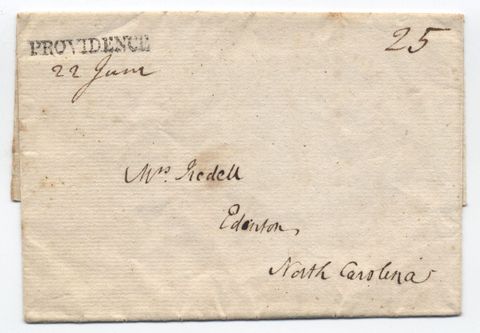 PROVIDENCE
25
22 June
Mrs Iredell
Edenton,
North Carolina